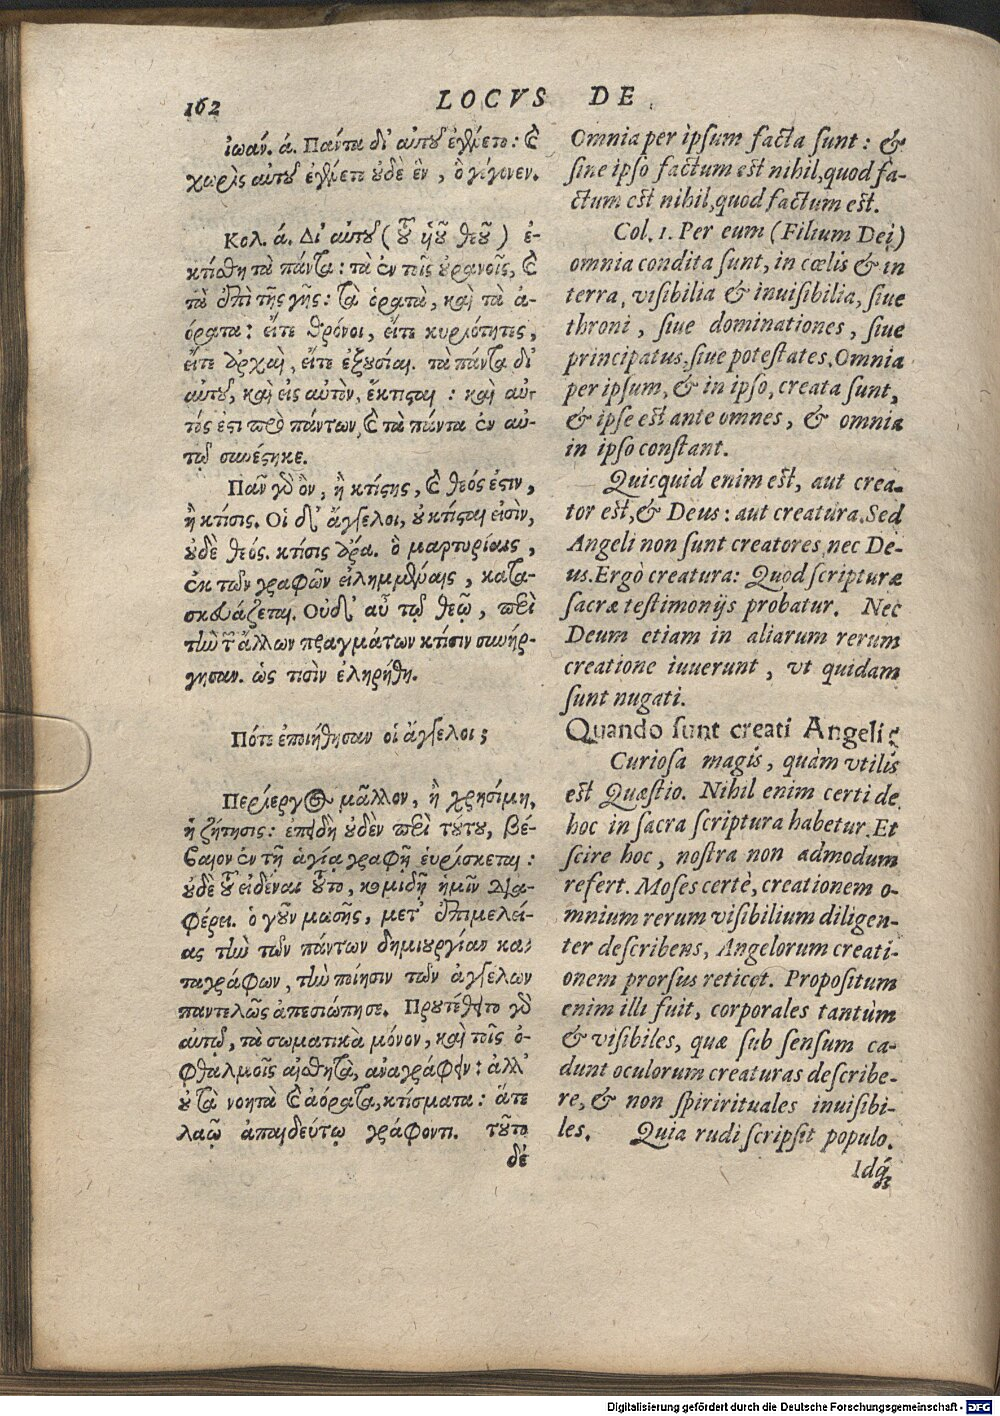 162
LOCVS DE
ἰωάν. ά. Πάντα δι' αὐτοῦ ἐγένετο: καὶ
χωρὶς αὐτοῦ ἐγένετο οὐδὲ ἓν, ὃ γέγονεν.
Κολ. ά. Δι' αὐτοῦ (τοῦ ὑιοῦ θεοῦ) ἐ-
κτίσθη τὰ πάντα: τὰ ἐν τοῖς οὐρανοῖς, καὶ
τὰ ἐπὶ τῆς γῆς: τὰ ὁρατὰ, καὶ τὰ ἀ-
όρατα: εἴτε θρόνοι, εἴτε κυριότητες,
εἴτε ἀρχαὶ, εἴτε ἐξουσίαι. τὰ πάντα δι'
αὐτοῦ, καὶ εἰς αὐτὸν, ἔκτισται: καὶ αὐ-
τός ἐστι πρὸ πάντων, καὶ τὰ πάντα ἐν αὐ-
τῷ συνέστηκε.
Πᾶν γὸ ὂν, ἢ κτίστης, καὶ θεός ἐστιν,
ἢ κτίσις. Οἱ δ' ἄγγελοι, οὐ κτίσται εἰσὶν,
οὐδὲ θεός. κτίσις ἄρα. ὃ μαρτυρίαις,
ἐκ τῶν γραφῶν εἰλημμέναις, κατα-
σκευάζεται. Οὐδ' αὖ τῷ θεῷ, περὶ
τὴν τῶν ἄλλων πραγμάτων κτίσιν συνήρ-
γησαν. ὡς τισὶν ἐληρήθη.
Πότε ἐποιήθησαν οἱ ἄγγελοι;
Περίεργος μᾶλλον, ἢ χρησίμη,
ἡ ζήτησις: ἐπειδὴ οὐδὲν περὶ τούτου, βέ-
βαιον ἐν τῇ ἁγίᾳ γραφῇ ἑυρίσκεται:
οὐδὲ τοῦ εἰδέναι τοῦτο, κομιδῇ ἡμῖν δια-
φέρει. ὁ γοῦν μωσῆς, μετ' ἐπιμελεί-
ας τὴν τῶν πάντων δημιουργίαν κα-
ταγράφων, τὴν ποίησιν τῶν ἀγγέλων
παντελῶς ἀπεσιώπησε. Προυτέθειτο γὸ
αὐτῷ, τὰ σωματικὰ μόνον, καὶ τοῖς ὀ-
φθαλμοῖς αἰσθητὰ, ἀναγράφειν: ἀλλ'
οὐ τὰ νοητὰ καὶ ἀόρατα, κτίσματα: ἅτε
λαῷ ἀπαιδεύτῳ γράφοντι. τοῦτο
δέ
Omnia per ipsum facta sunt: &
sine ipso factum est nihil, quod fa-
ctum est nihil, quod factum est.
Col. 1. Per eum (Filium Dei)
omnia condita sunt, in cœlis & in
terra, visibilia & inuisibilia, siue
throni, siue dominationes, siue
principatus, siue potestates. Omnia
per ipsum, & in ipso, creata sunt,
& ipse est ante omnes, & omnia
in ipso constant.
Quicquid enim est, aut crea-
tor est, & Deus: aut creatura. Sed
Angeli non sunt creatores, nec De-
us. Ergò creatura: Quod scripturæ
sacræ testimonijs probatur. Nec
Deum etiam in aliarum rerum
creatione iuuerunt, vt quidam
sunt nugati.
Quando sunt creati Angeli?
Curiosa magis, quàm vtilis
est Quæstio. Nihil enim certi de
hoc in sacra scriptura habetur. Et
scire hoc, nostra non admodum
refert. Moses certè, creationem o-
mnium rerum visibilium diligen-
ter describens, Angelorum creati-
onem prorsus reticet. Propositum
enim illi fuit, corporales tantùm
& visibiles, quæ sub sensum ca-
dunt oculorum creaturas describe-
re, & non spirirituales inuisibi-
les. Quia rudi scripsit populo.
Idq́;
Digitalisierung gefördert durch die Deutsche Forschungsgemeinschaft - DFG